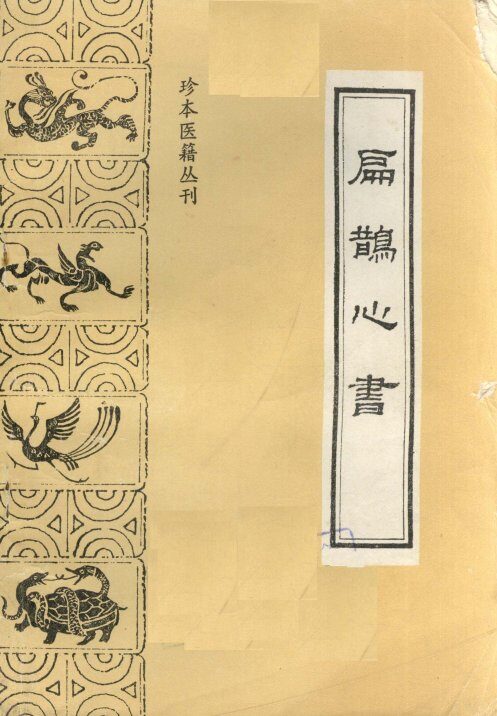 扁鵲心書
珍本医籍丛刊